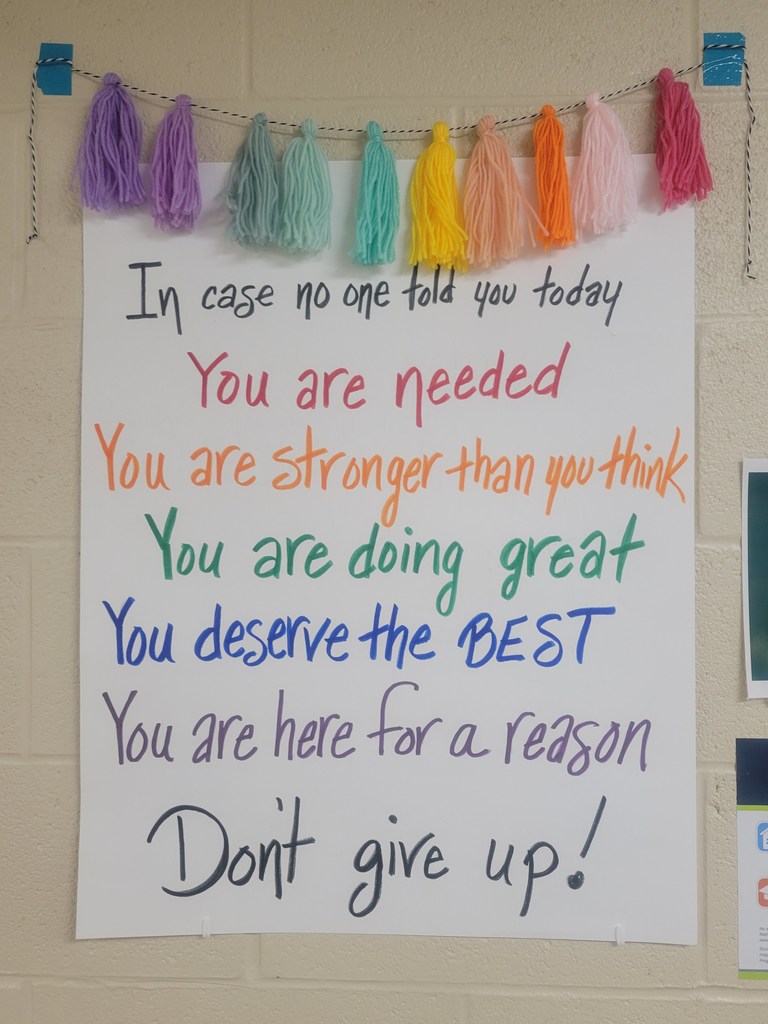 In case no one told you today
You are needed
You are stronger than you think
You are doing great
You deserve the BEST
You are here for a reason
Don't give up!